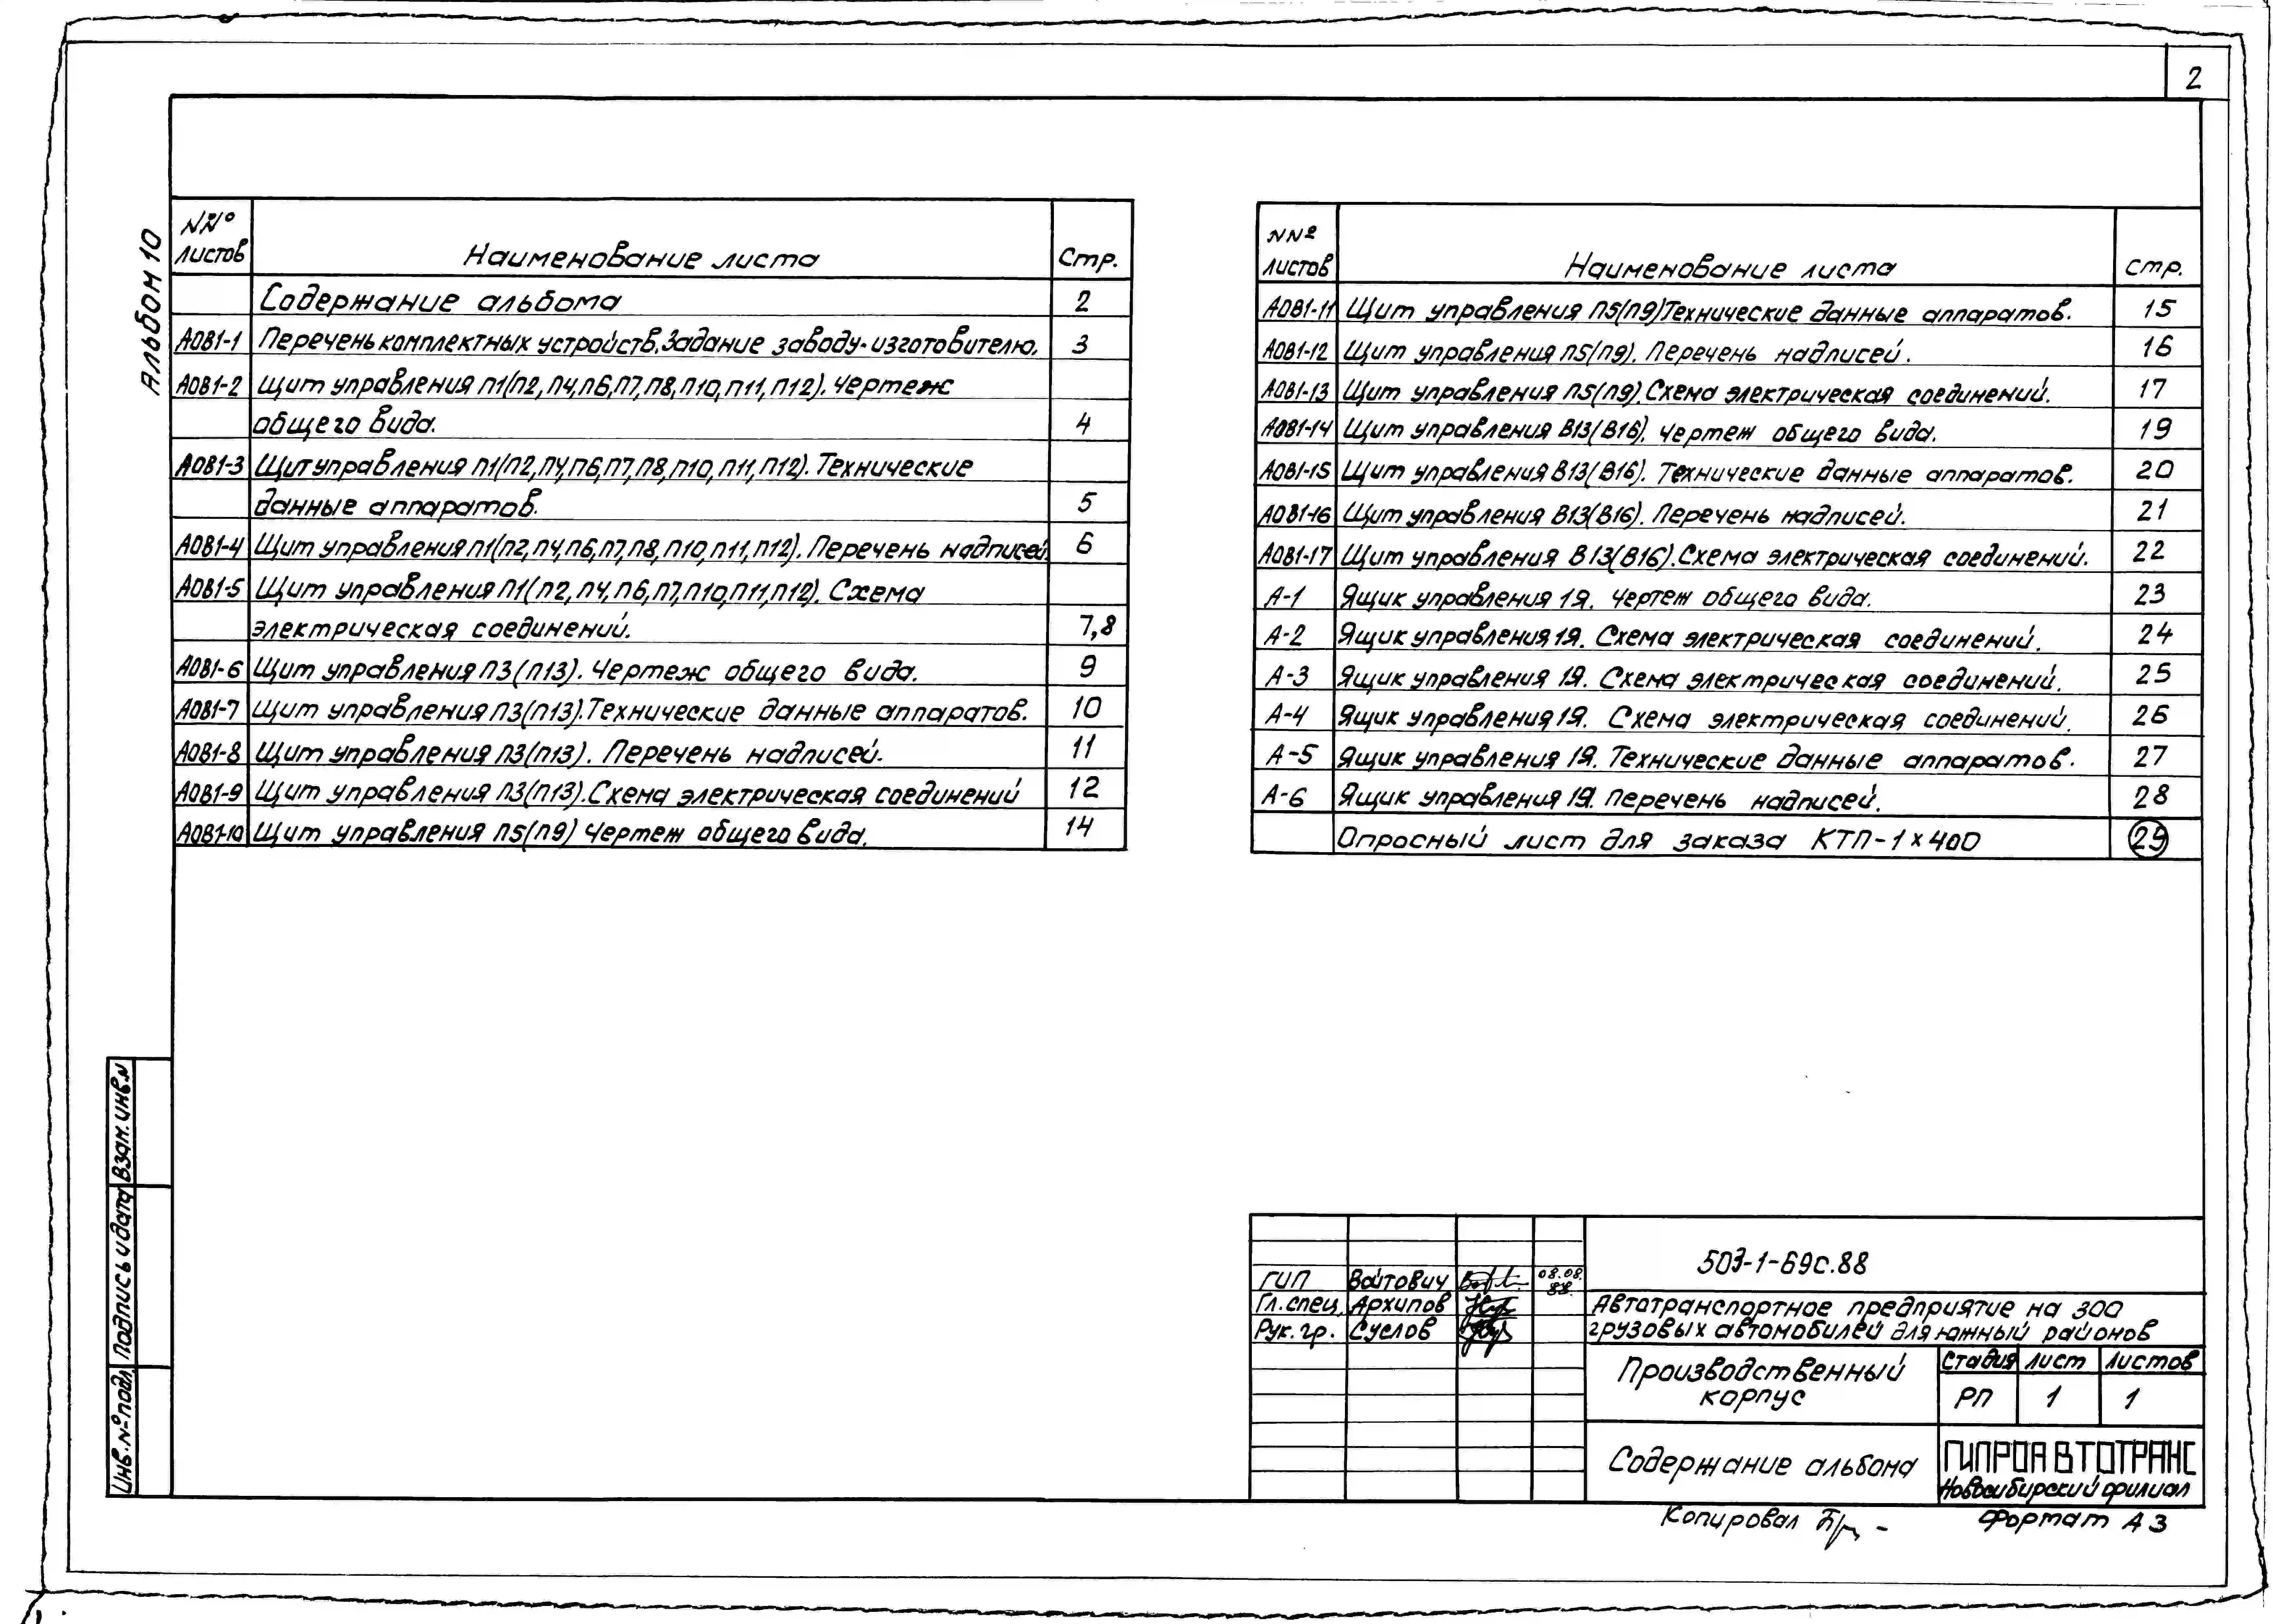 2
Альбом 10
NNº листов Наименование листа Стр.
Содержание альбома 2
АОВ1-1 Перечень комплектных устройств. Задание заводу-изготовителю. 3
АОВ1-2 Щит управления П1(П2,П4,П6,П7,П8,П10,П11,П12). Чертеж
общего вида. 4
АОВ1-3 Щит управления П1(П2,П4,П6,П7,П8,П10,П11,П12). Технические
данные аппаратов. 5
АОВ1-4 Щит управления П1(П2,П4,П6,П7,П8,П10,П11,П12). Перечень надписей 6
АОВ1-5 Щит управления П1(П2,П4,П6,П7,П10,П11,П12). Схема
электрическая соединений. 7,8
АОВ1-6 Щит управления П3(П13). Чертеж общего вида. 9
АОВ1-7 Щит управления П3(П13). Технические данные аппаратов. 10
АОВ1-8 Щит управления П3(П13). Перечень надписей. 11
АОВ1-9 Щит управления П3(П13). Схема электрическая соединений 12
АОВ1-10 Щит управления П5(П9) Чертеж общего вида. 14
NNº листов Наименование листа стр.
АОВ1-11 Щит управления П5(П9) Технические данные аппаратов. 15
АОВ1-12 Щит управления П5(П9). Перечень надписей. 16
АОВ1-13 Щит управления П5(П9). Схема электрическая соединений. 17
АОВ1-14 Щит управления В13(В16). Чертеж общего вида. 19
АОВ1-15 Щит управления В13(В16). Технические данные аппаратов. 20
АОВ1-16 Щит управления В13(В16). Перечень надписей. 21
АОВ1-17 Щит управления В13(В16). Схема электрическая соединений. 22
А-1 Ящик управления 1Я. Чертеж общего вида. 23
А-2 Ящик управления 1Я. Схема электрическая соединений. 24
А-3 Ящик управления 1Я. Схема электрическая соединений. 25
А-4 Ящик управления 1Я. Схема электрическая соединений. 26
А-5 Ящик управления 1Я. Технические данные аппаратов. 27
А-6 Ящик управления 1Я. Перечень надписей. 28
Опросный лист для заказа КТП-1×400 29
Взам. инв. N
Подпись и дата
Инв. Nº подл
503-1-69с.88
ГИП Войтович 08.08.88.
Гл. спец. Архипов
Рук. гр. Суслов
Автотранспортное предприятие на 300
грузовых автомобилей для южный районов
Производственный
корпус
Стадия Лист Листов
РП 1 1
Содержание альбома
ГИПРОАВТОТРАНС
Новосибирский филиал
Копировал
Формат А3